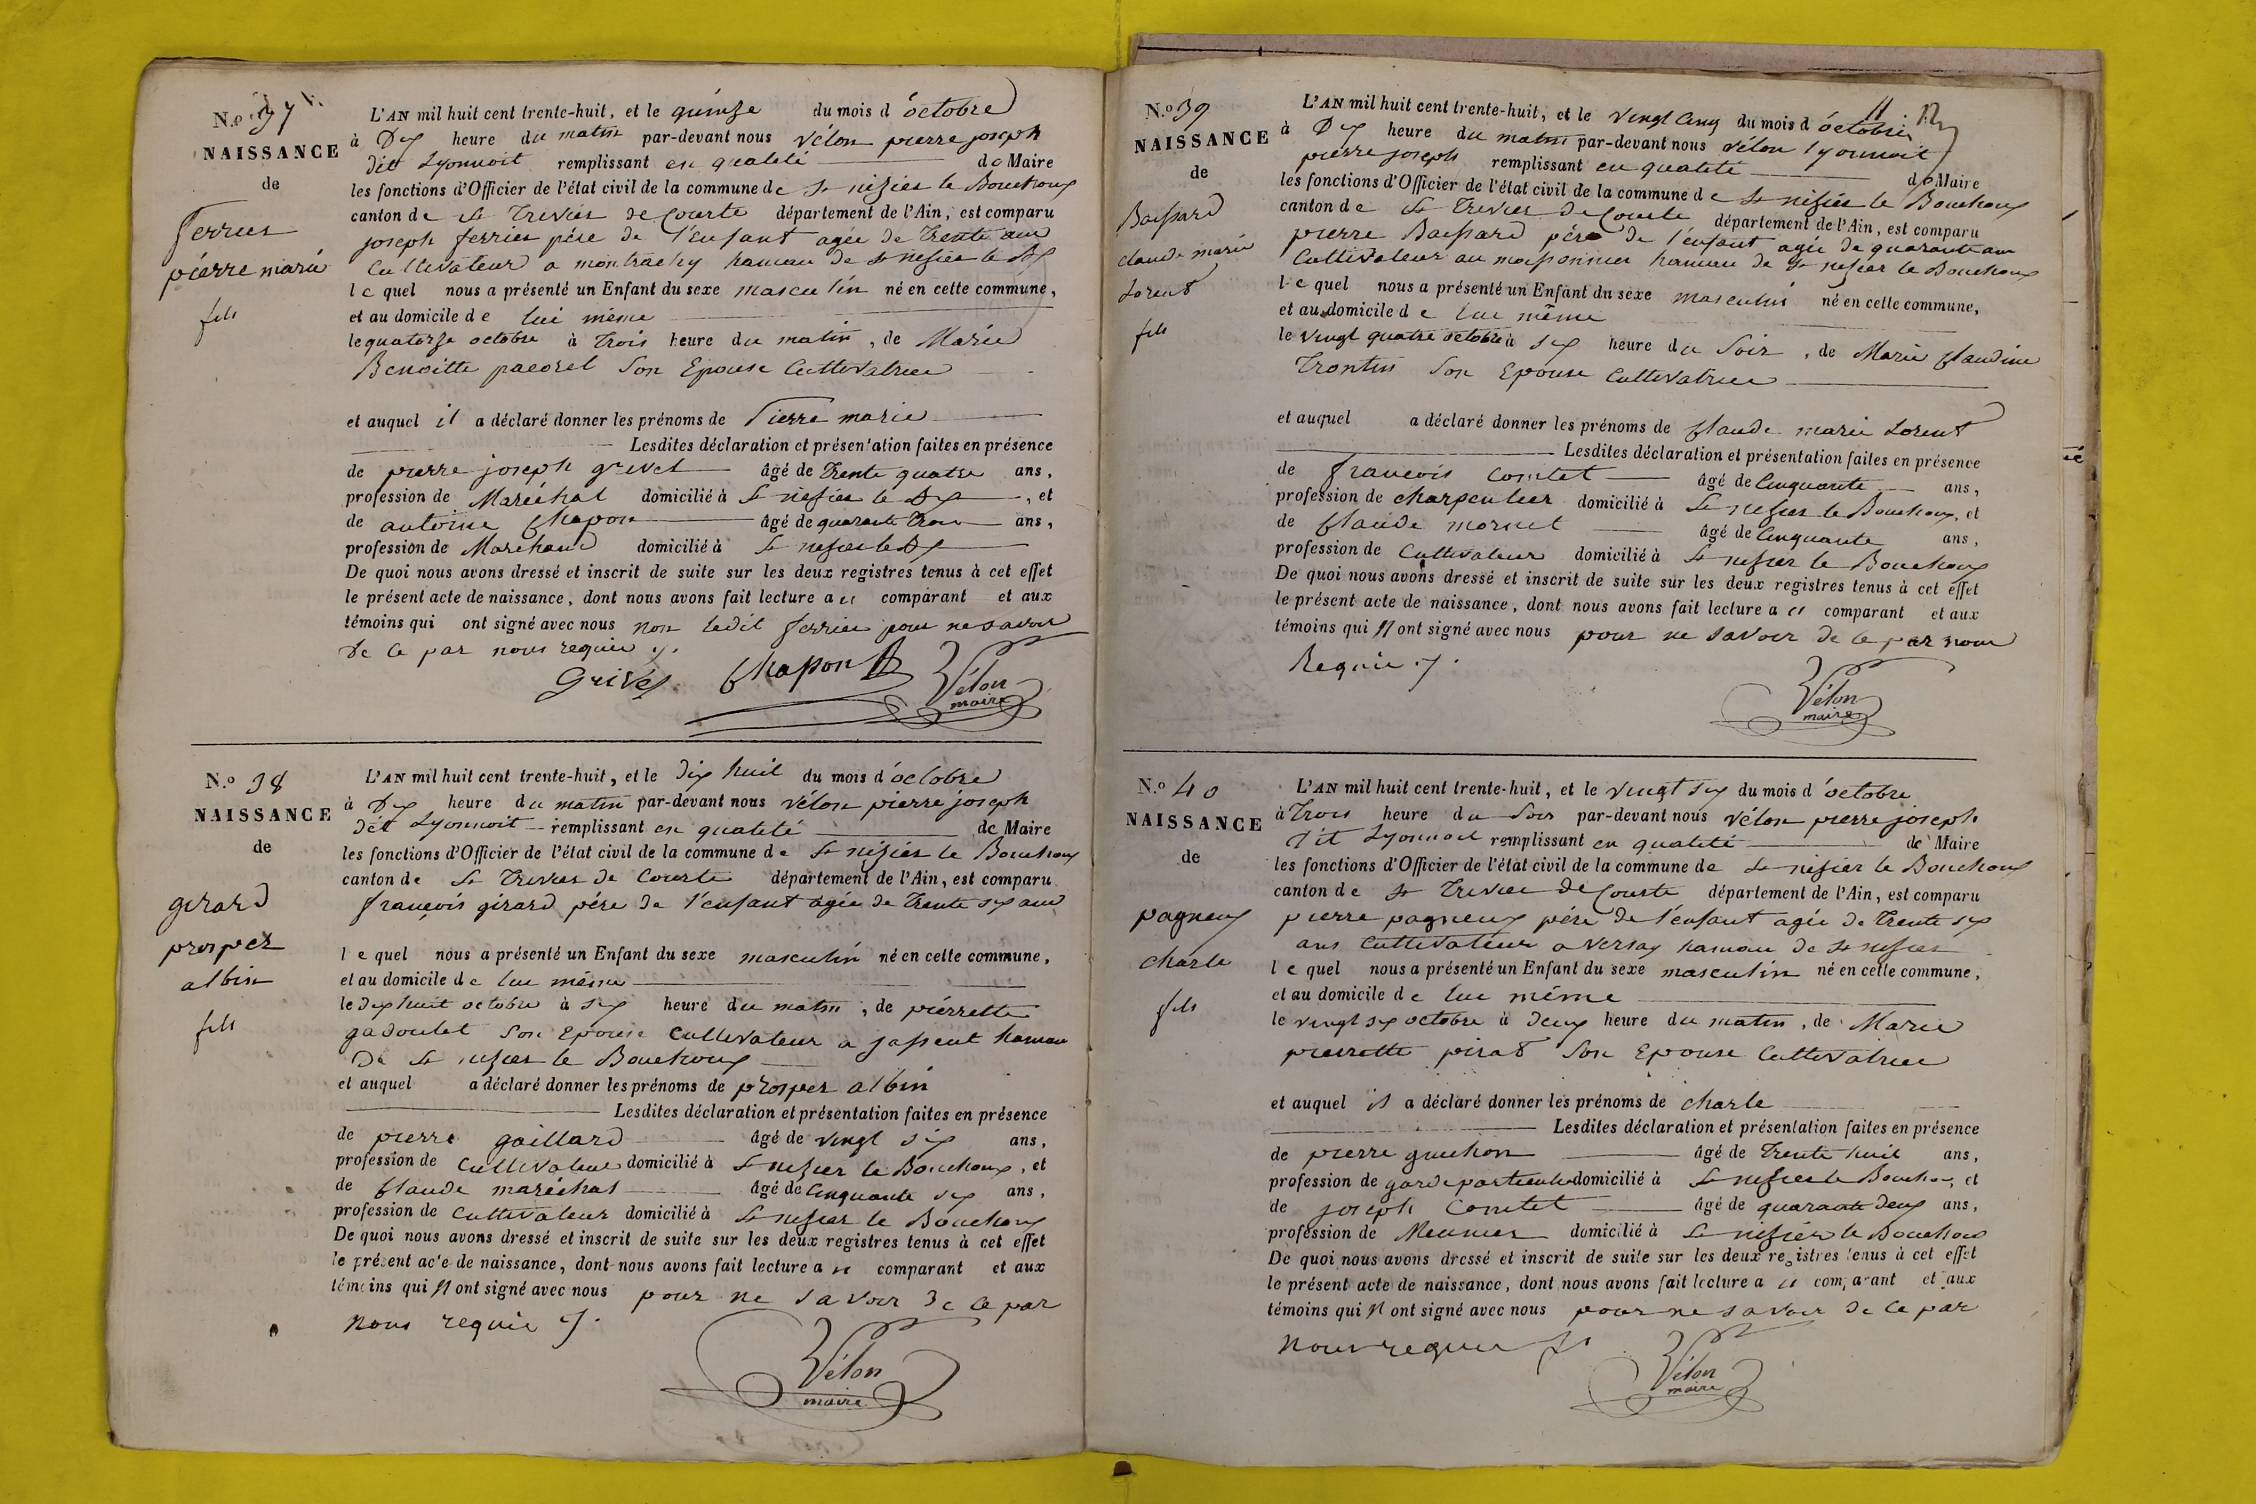 N.º 37
NAISSANCE
de
ferrier
pierre marie
fils
L'AN mil huit cent trente-huit, et le quinze du mois d'octobre
à Dix heure du matin par-devant nous vélon pierre joseph
dit Lyonnoit remplissant en qualité de Maire
les fonctions d'Officier de l'état civil de la commune de St nizier le Bouchoux
canton de St Trivier de Courte département de l'Ain, est comparu
joseph ferrier pére de l'enfant agée de Trente ans
Cultivateur a montrachy hameau de St nisier le Bx
lequel nous a présenté un Enfant du sexe masculin né en cette commune,
et au domicile de lui même
le quatorze octobre à Trois heure du matin, de Marie
Benoitte pacoret Son Epouse Cultivatrice
et auquel il a déclaré donner les prénoms de Pierre marie
Lesdites déclaration et présentation faites en présence
de pierre joseph grivel âgé de Trente quatre ans,
profession de Maréchal domicilié à St nisier le Bx, et
de antoine Chapon âgé de quarante Trois ans,
profession de Marchand domicilié à St nisier le Bx
De quoi nous avons dressé et inscrit de suite sur les deux registres tenus à cet effet
le présent acte de naissance, dont nous avons fait lecture au comparant et aux
témoins qui ont signé avec nous non ledit ferrier pour ne savoir
de ce par nous requie
Grivel Chapon Vélon
maire
N.º 38
NAISSANCE
de
girard
prosper
albin
fils
L'AN mil huit cent trente-huit, et le dix huit du mois d'octobre
à Dix heure du matin par-devant nous vélon pierre joseph
dit Lyonnoit remplissant en qualité de Maire
les fonctions d'Officier de l'état civil de la commune de St nizier le Bouchoux
canton de St Trivier de Courte département de l'Ain, est comparu
françois girard pére de l'enfant agée de Trente six ans
lequel nous a présenté un Enfant du sexe masculin né en cette commune,
et au domicile de lui même
le dix huit octobre à six heure du matin, de pierrette
gadoulet Son Epouse Cultivateur a jassent hameau
De St nizier le Bouchoux
et auquel a déclaré donner les prénoms de prosper albin
Lesdites déclaration et présentation faites en présence
de pierre gaillard âgé de vingt six ans,
profession de Cultivateur domicilié à St nizier le Bouchoux, et
de Claude maréchal âgé de Cinquante six ans,
profession de Cultivateur domicilié à St nisier le Bouchoux
De quoi nous avons dressé et inscrit de suite sur les deux registres tenus à cet effet
le présent acte de naissance, dont nous avons fait lecture au comparant et aux
témoins qui N ont signé avec nous pour ne savoir de ce par
nous requie
Vélon
maire
N.º 39
NAISSANCE
de
Bassard
claude marie
Lorent
fils
L'AN mil huit cent trente-huit, et le vingt Cinq du mois d'octobre
à Dix heure du matin par-devant nous vélon Lyonnoit
pierre joseph remplissant en qualité de Maire
les fonctions d'Officier de l'état civil de la commune de St nisier le Bouchoux
canton de St Trivier de Courte département de l'Ain, est comparu
pierre Bassard pére de l'enfant agée de quarante ans
Cultivateur au moissonnier hameau de St nisier le Bouchoux
lequel nous a présenté un Enfant du sexe masculin né en cette commune,
et au domicile de lui même
le vingt quatre octobre à six heure du Soir, de Marie Claudine
Trontin Son Epouse Cultivatrice
et auquel a déclaré donner les prénoms de Claude marie Lorent
Lesdites déclaration et présentation faites en présence
de françois Comtet âgé de Cinquante ans,
profession de charpentier domicilié à St nisier le Bouchoux, et
de Claude mornet âgé de Cinquante ans,
profession de Cultivateur domicilié à St nisier le Bouchoux
De quoi nous avons dressé et inscrit de suite sur les deux registres tenus à cet effet
le présent acte de naissance, dont nous avons fait lecture au comparant et aux
témoins qui N ont signé avec nous pour ne savoir de ce par nous
Requie
Vélon
maire
N.º 40
NAISSANCE
de
pagneux
charle
fils
L'AN mil huit cent trente-huit, et le vingt six du mois d'octobre
à Trois heure du Soir par-devant nous vélon pierre joseph
dit Lyonnoit remplissant en qualité de Maire
les fonctions d'Officier de l'état civil de la commune de St nisier le Bouchoux
canton de St Trivier de Courte département de l'Ain, est comparu
pierre pagneux pére de l'enfant agée de Trente six
ans Cultivateur a Versay hameau de St nisier
lequel nous a présenté un Enfant du sexe masculin né en cette commune,
et au domicile de lui même
le vingt six octobre à deux heure du matin, de Marie
pierrette pirat Son Epouse Cultivatrice
et auquel il a déclaré donner les prénoms de charle
Lesdites déclaration et présentation faites en présence
de pierre guichon âgé de Trente huit ans,
profession de garde particulier domicilié à St nisier le Bouchoux, et
de joseph Comtet âgé de quarante deux ans,
profession de Meunier domicilié à St nisier le Bouchoux
De quoi nous avons dressé et inscrit de suite sur les deux registres tenus à cet effet
le présent acte de naissance, dont nous avons fait lecture au comparant et aux
témoins qui N ont signé avec nous pour ne savoir de ce par
nous requie
Vélon
maire